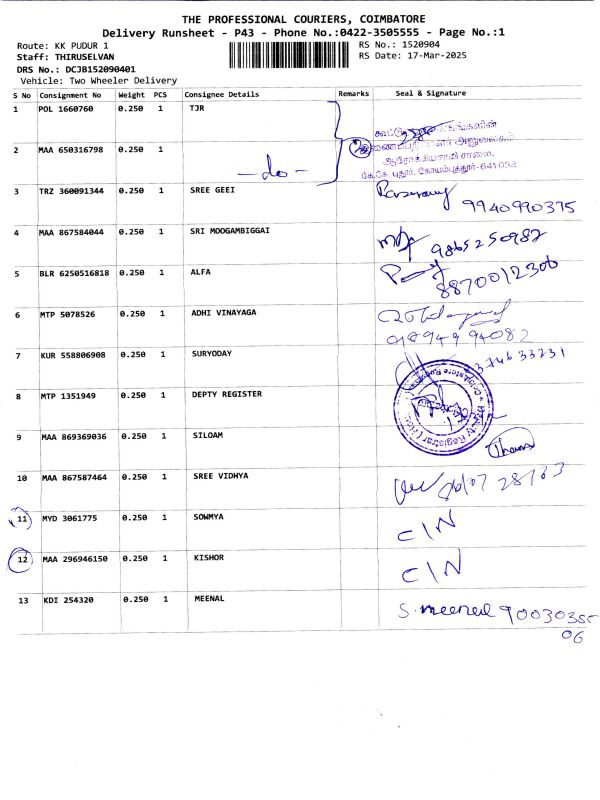 THE PROFESSIONAL COURIERS, COIMBATORE
Delivery Runsheet - P43 - Phone No.:0422-3505555 - Page No.:1
Route: KK PUDUR 1 RS No.: 1520904
Staff: THIRUSELVAN RS Date: 17-Mar-2025
DRS No.: DCJB152090401
Vehicle: Two Wheeler Delivery
S No Consignment No Weight PCS Consignee Details Remarks Seal & Signature
1 POL 1660760 0.250 1 TJR
2 MAA 650316798 0.250 1
-do-
ஆரோக்கியசாமி சாலை,
கே.கே. புதூர், கோயம்புத்தூர்-641038
3 TRZ 360091344 0.250 1 SREE GEEI
9940990375
4 MAA 867584044 0.250 1 SRI MOOGAMBIGGAI
9865250982
5 BLR 6250516818 0.250 1 ALFA
8870012306
6 MTP 5078526 0.250 1 ADHI VINAYAGA
7 KUR 558806908 0.250 1 SURYODAY
8 MTP 1351949 0.250 1 DEPTY REGISTER
9 MAA 869369036 0.250 1 SILOAM
10 MAA 867587464 0.250 1 SREE VIDHYA
11 MYD 3061775 0.250 1 SOWMYA C/N
12 MAA 296946150 0.250 1 KISHOR C/N
13 KDI 254320 0.250 1 MEENAL S. meenal
06